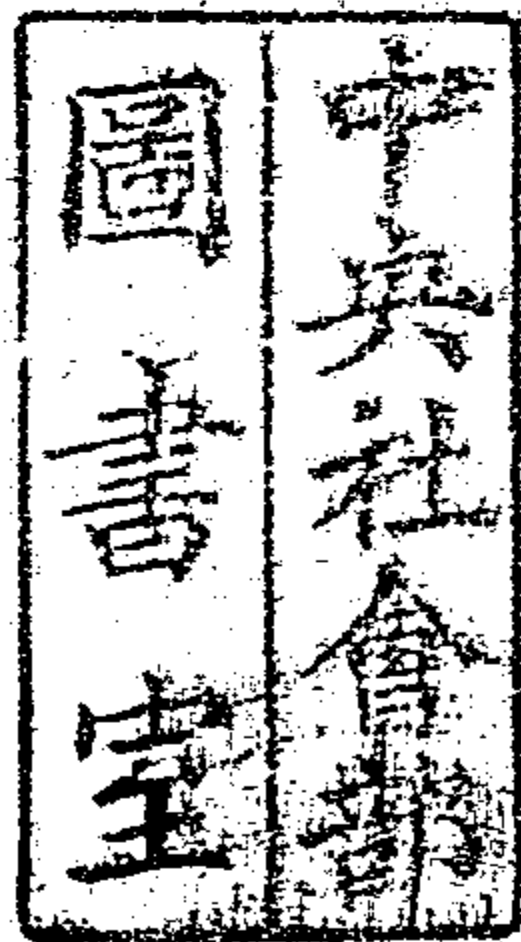 中央社會部
圖書室